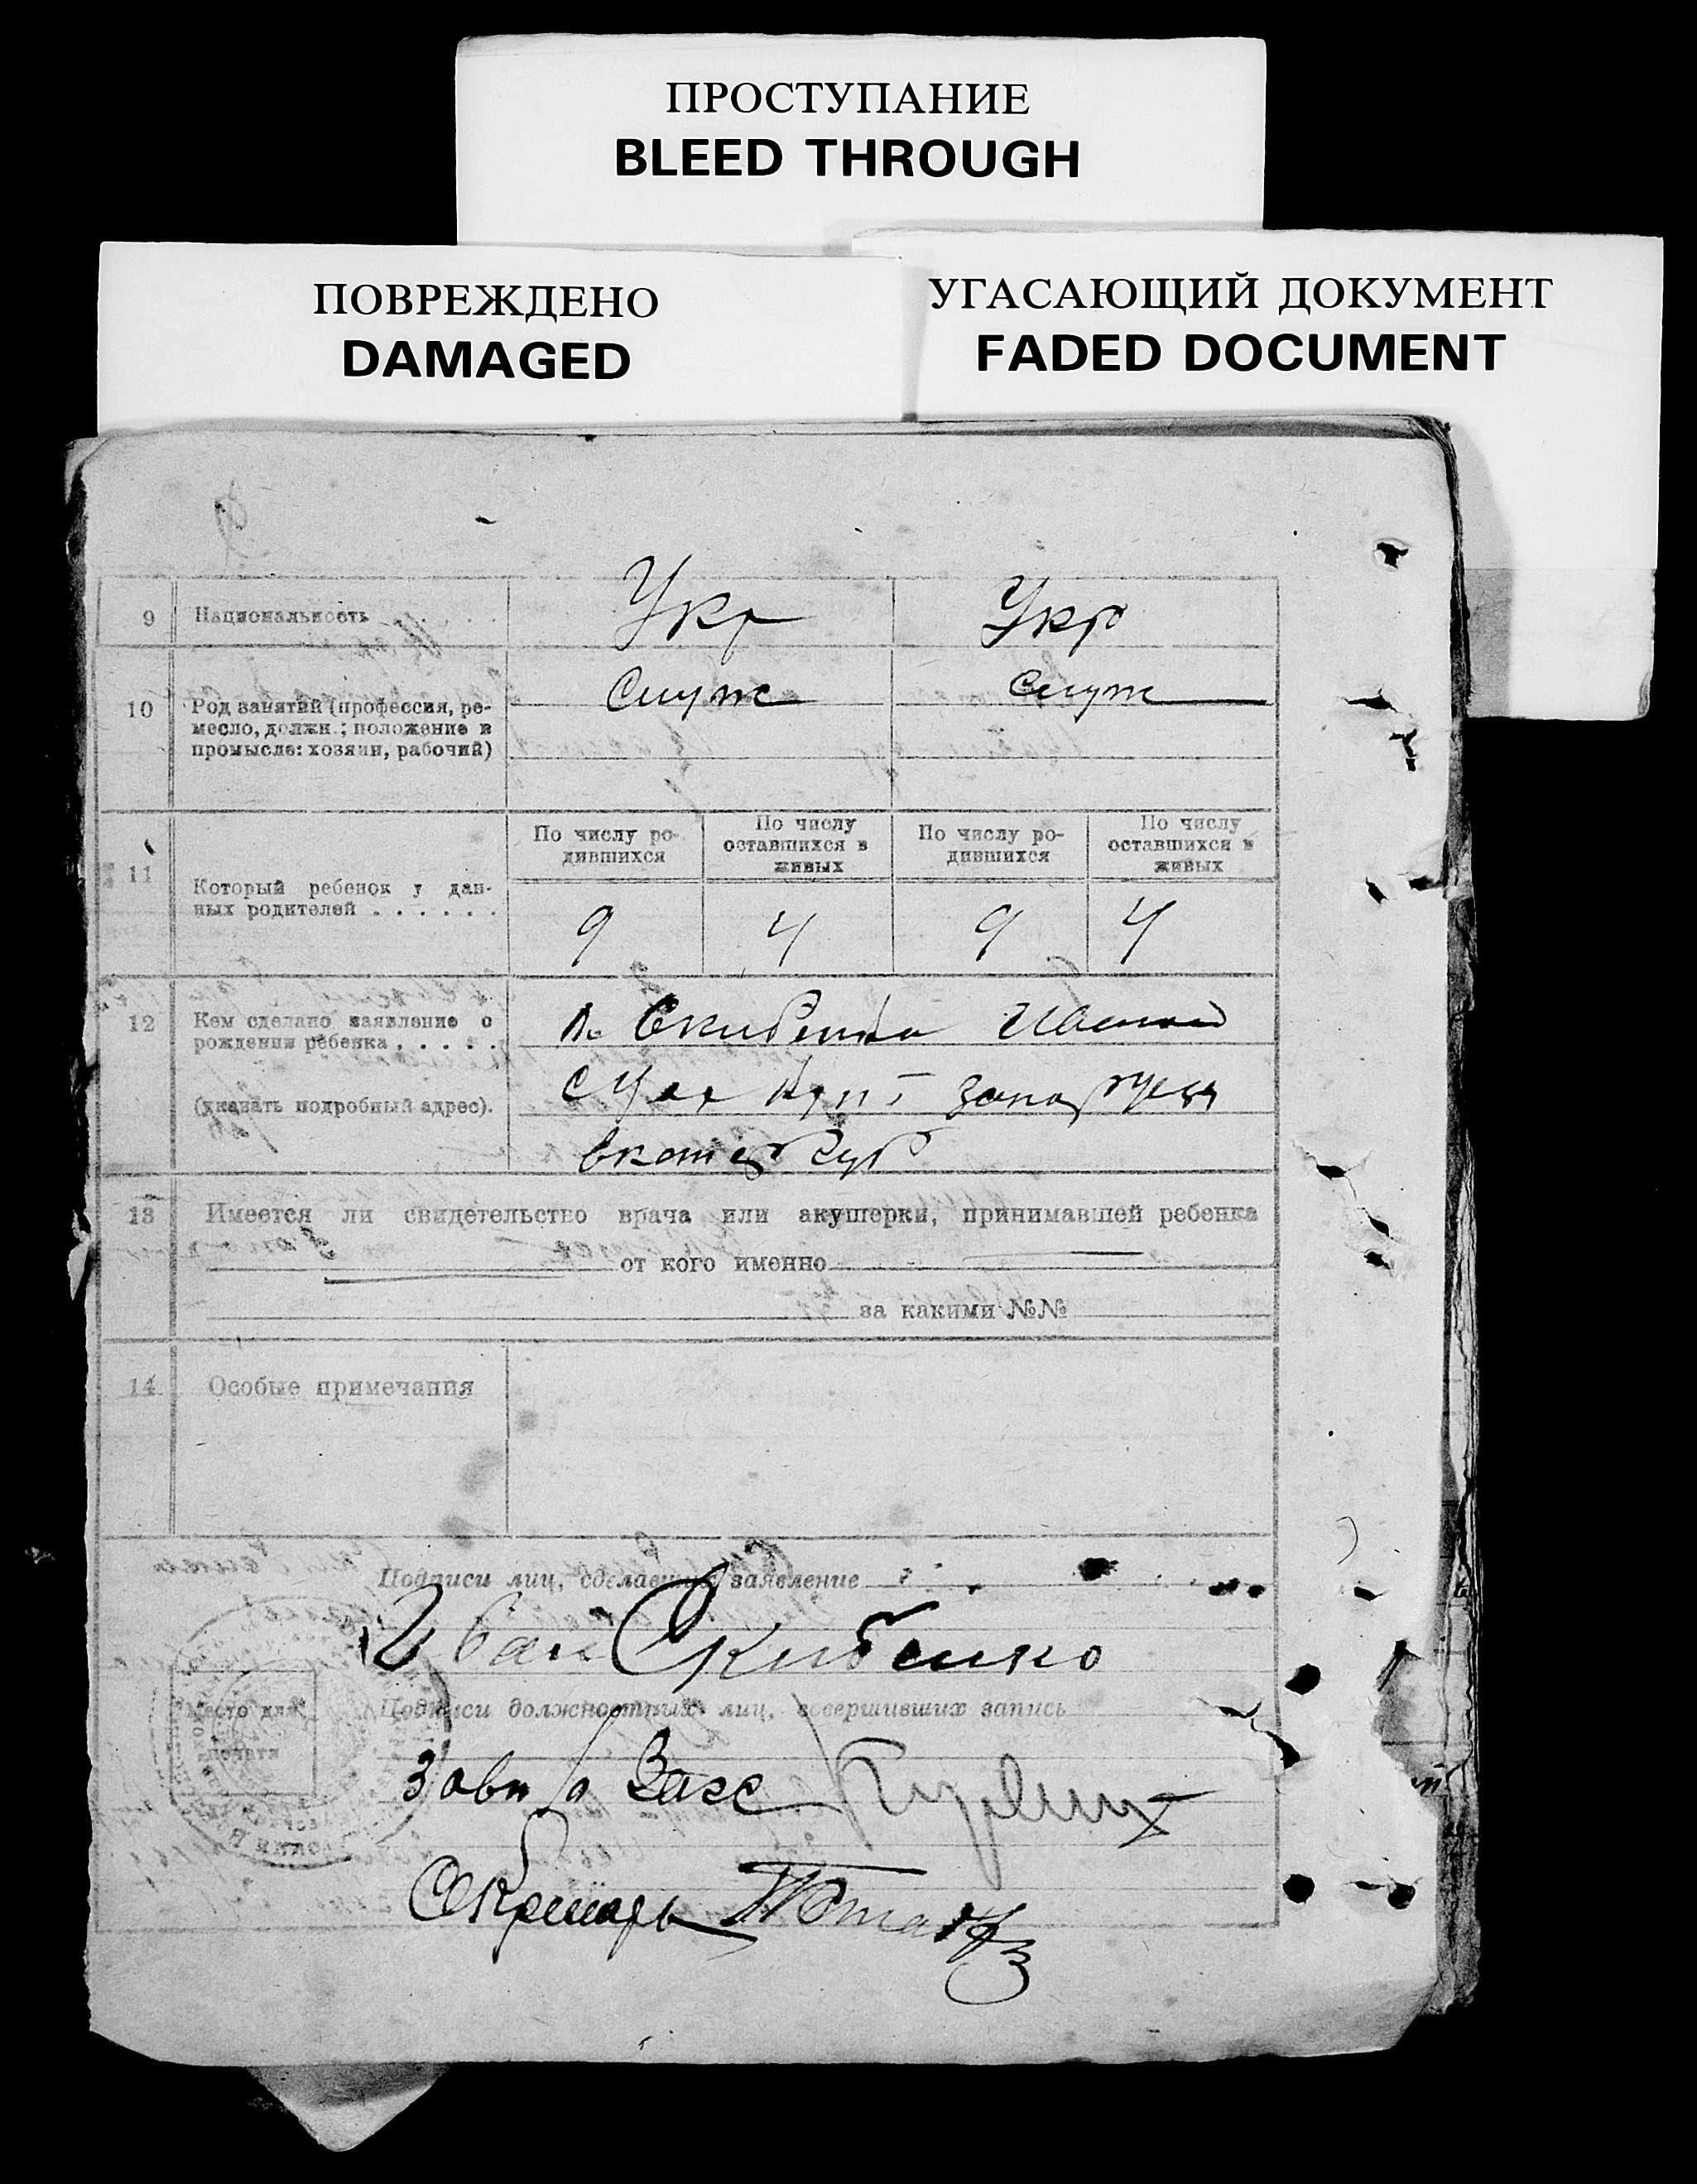 ПРОСТУПАНИЕ
BLEED THROUGH
ПОВРЕЖДЕНО
DAMAGED
УГАСАЮЩИЙ ДОКУМЕНТ
FADED DOCUMENT
9 Национальность . . . . . Укр Укр
10 Род занятий (профессия, ре-
месло, должн.; положение в
промысле: хозяин, рабочий)
служ служ
11 Который ребенок у дан-
ных родителей . . . . . .
По числу ро-
дившихся
По числу
оставшихся в
живых
По числу ро-
дившихся
По числу
оставшихся в
живых
9 4 9 4
12 Кем сделано заявление о
рождении ребенка . . . . .
(указать подробный адрес).
Скибенко Иваном
Екатер губ
13 Имеется ли свидетельство врача или акушерки, принимавшей ребенка
от кого именно
за какими №№
14 Особые примечания
Подписи лиц, сделавших заявление
Иван Скибенко
Место для
печати
Подписи должностных лиц, совершивших запись
Загс
Секретарь